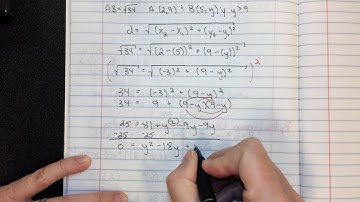 AB=√34 A(2,9) + B(5,y), y>9
d=√(x₂-x₁)²+(y₂-y₁)²
√34=√(2-(5))²+(9-(y))²
(√34=√(-3)²+(9-y)²)²
34=(-3)²+(9-y)²
34=9+(9-y)(9-y)
25=81+y²-9y-9y
-25 -25
0=y²-18y+